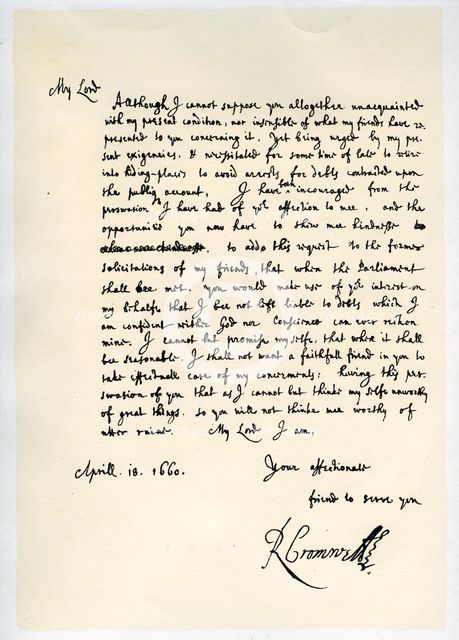 My Lord
Allthough I cannot suppose you alltogether unacquainted
with my present condition, nor insensible of what my friends have re-
presented to you concerning it. Yet being urged by my pre-
sent exigencies, & necessitated for some time of late to retire
into hiding-places to avoid arrests for debts contracted upon
the publiq account, I have been incouraged from the
perswasion I have had of yor affection to mee, and the
opportunitie you now have to shew mee kindnesse to
to adde this request to the former
solicitations of my friends, that when the Parliament
shall bee met, you would make use of yor interest on
my behalfe that I bee not left liable to debts which I
am confident neither God nor Conscience can ever reckon
mine. I cannot but promise my selfe, that when it shall
bee seasonable, I shall not want a faithfull friend in you to
take effectuall care of my concernments: having this per-
swasion of you that as I cannot but thinke my selfe unworthy
of great things, so you will not thinke mee worthy of
utter ruine. My Lord I am
Aprill. 18. 1660.
Your affectionate
friend to serve you
R Cromwell